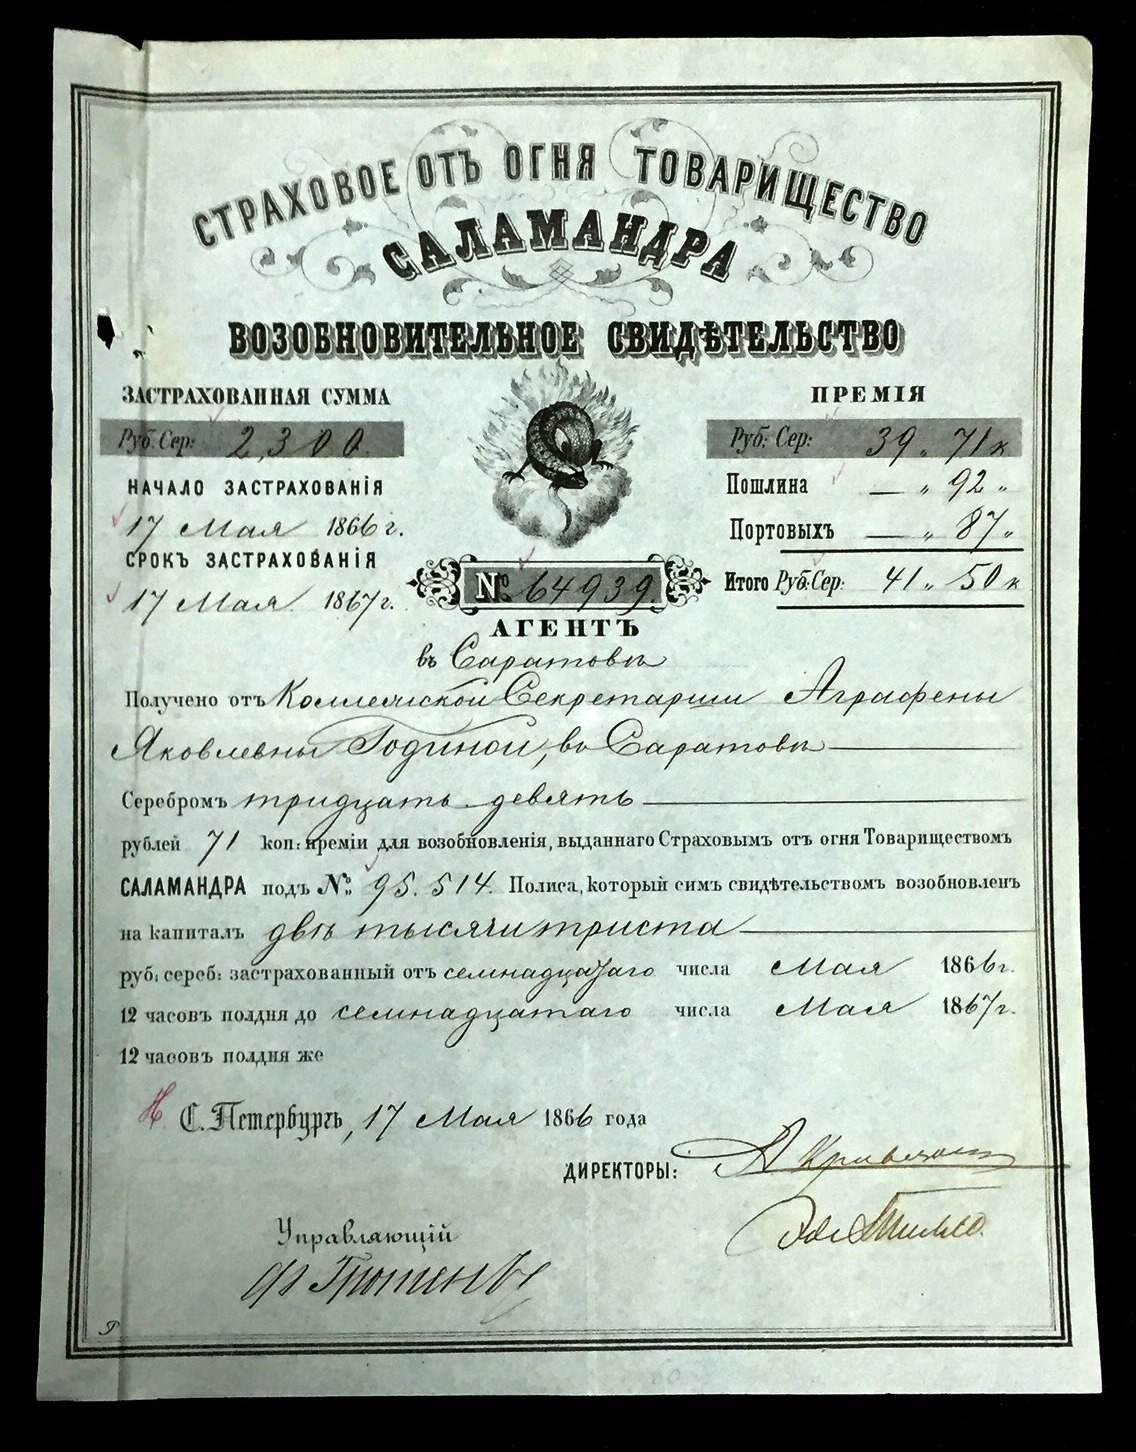 СТРАХОВОЕ ОТЪ ОГНЯ ТОВАРИЩЕСТВО
САЛАМАНДРА
ВОЗОБНОВИТЕЛЬНОЕ СВИДѢТЕЛЬСТВО
ЗАСТРАХОВАННАЯ СУММА
Руб: Сер: 2,300.
НАЧАЛО ЗАСТРАХОВАНІЯ
17 Мая 1866 г.
СРОКЪ ЗАСТРАХОВАНІЯ
17 Мая 1867 г.
ПРЕМІЯ
Руб: Сер: 39 „ 71 к
Пошлина — „ 92 „
Портовыхъ — „ 87 „
Итого Руб: Сер: 41 „ 50 к
№ 64939.
АГЕНТЪ
въ Саратовѣ
Получено отъ Коллежской Секретарши Аграфены
Яковлевны Годиной, въ Саратовѣ
Серебромъ тридцать девять
рублей 71 коп: преміи для возобновленія, выданнаго Страховымъ отъ огня Товариществомъ
САЛАМАНДРА подъ №: 95.514. Полиса, который симъ свидѣтельствомъ возобновленъ
на капиталъ двѣ тысячи триста
руб: сереб: застрахованный отъ семнадцатаго числа Мая 1866 г.
12 часовъ полдня до семнадцатаго числа Мая 1867 г.
12 часовъ полдня же
С. Петербургъ, 17 Мая 1866 года
ДИРЕКТОРЫ:
Управляющій